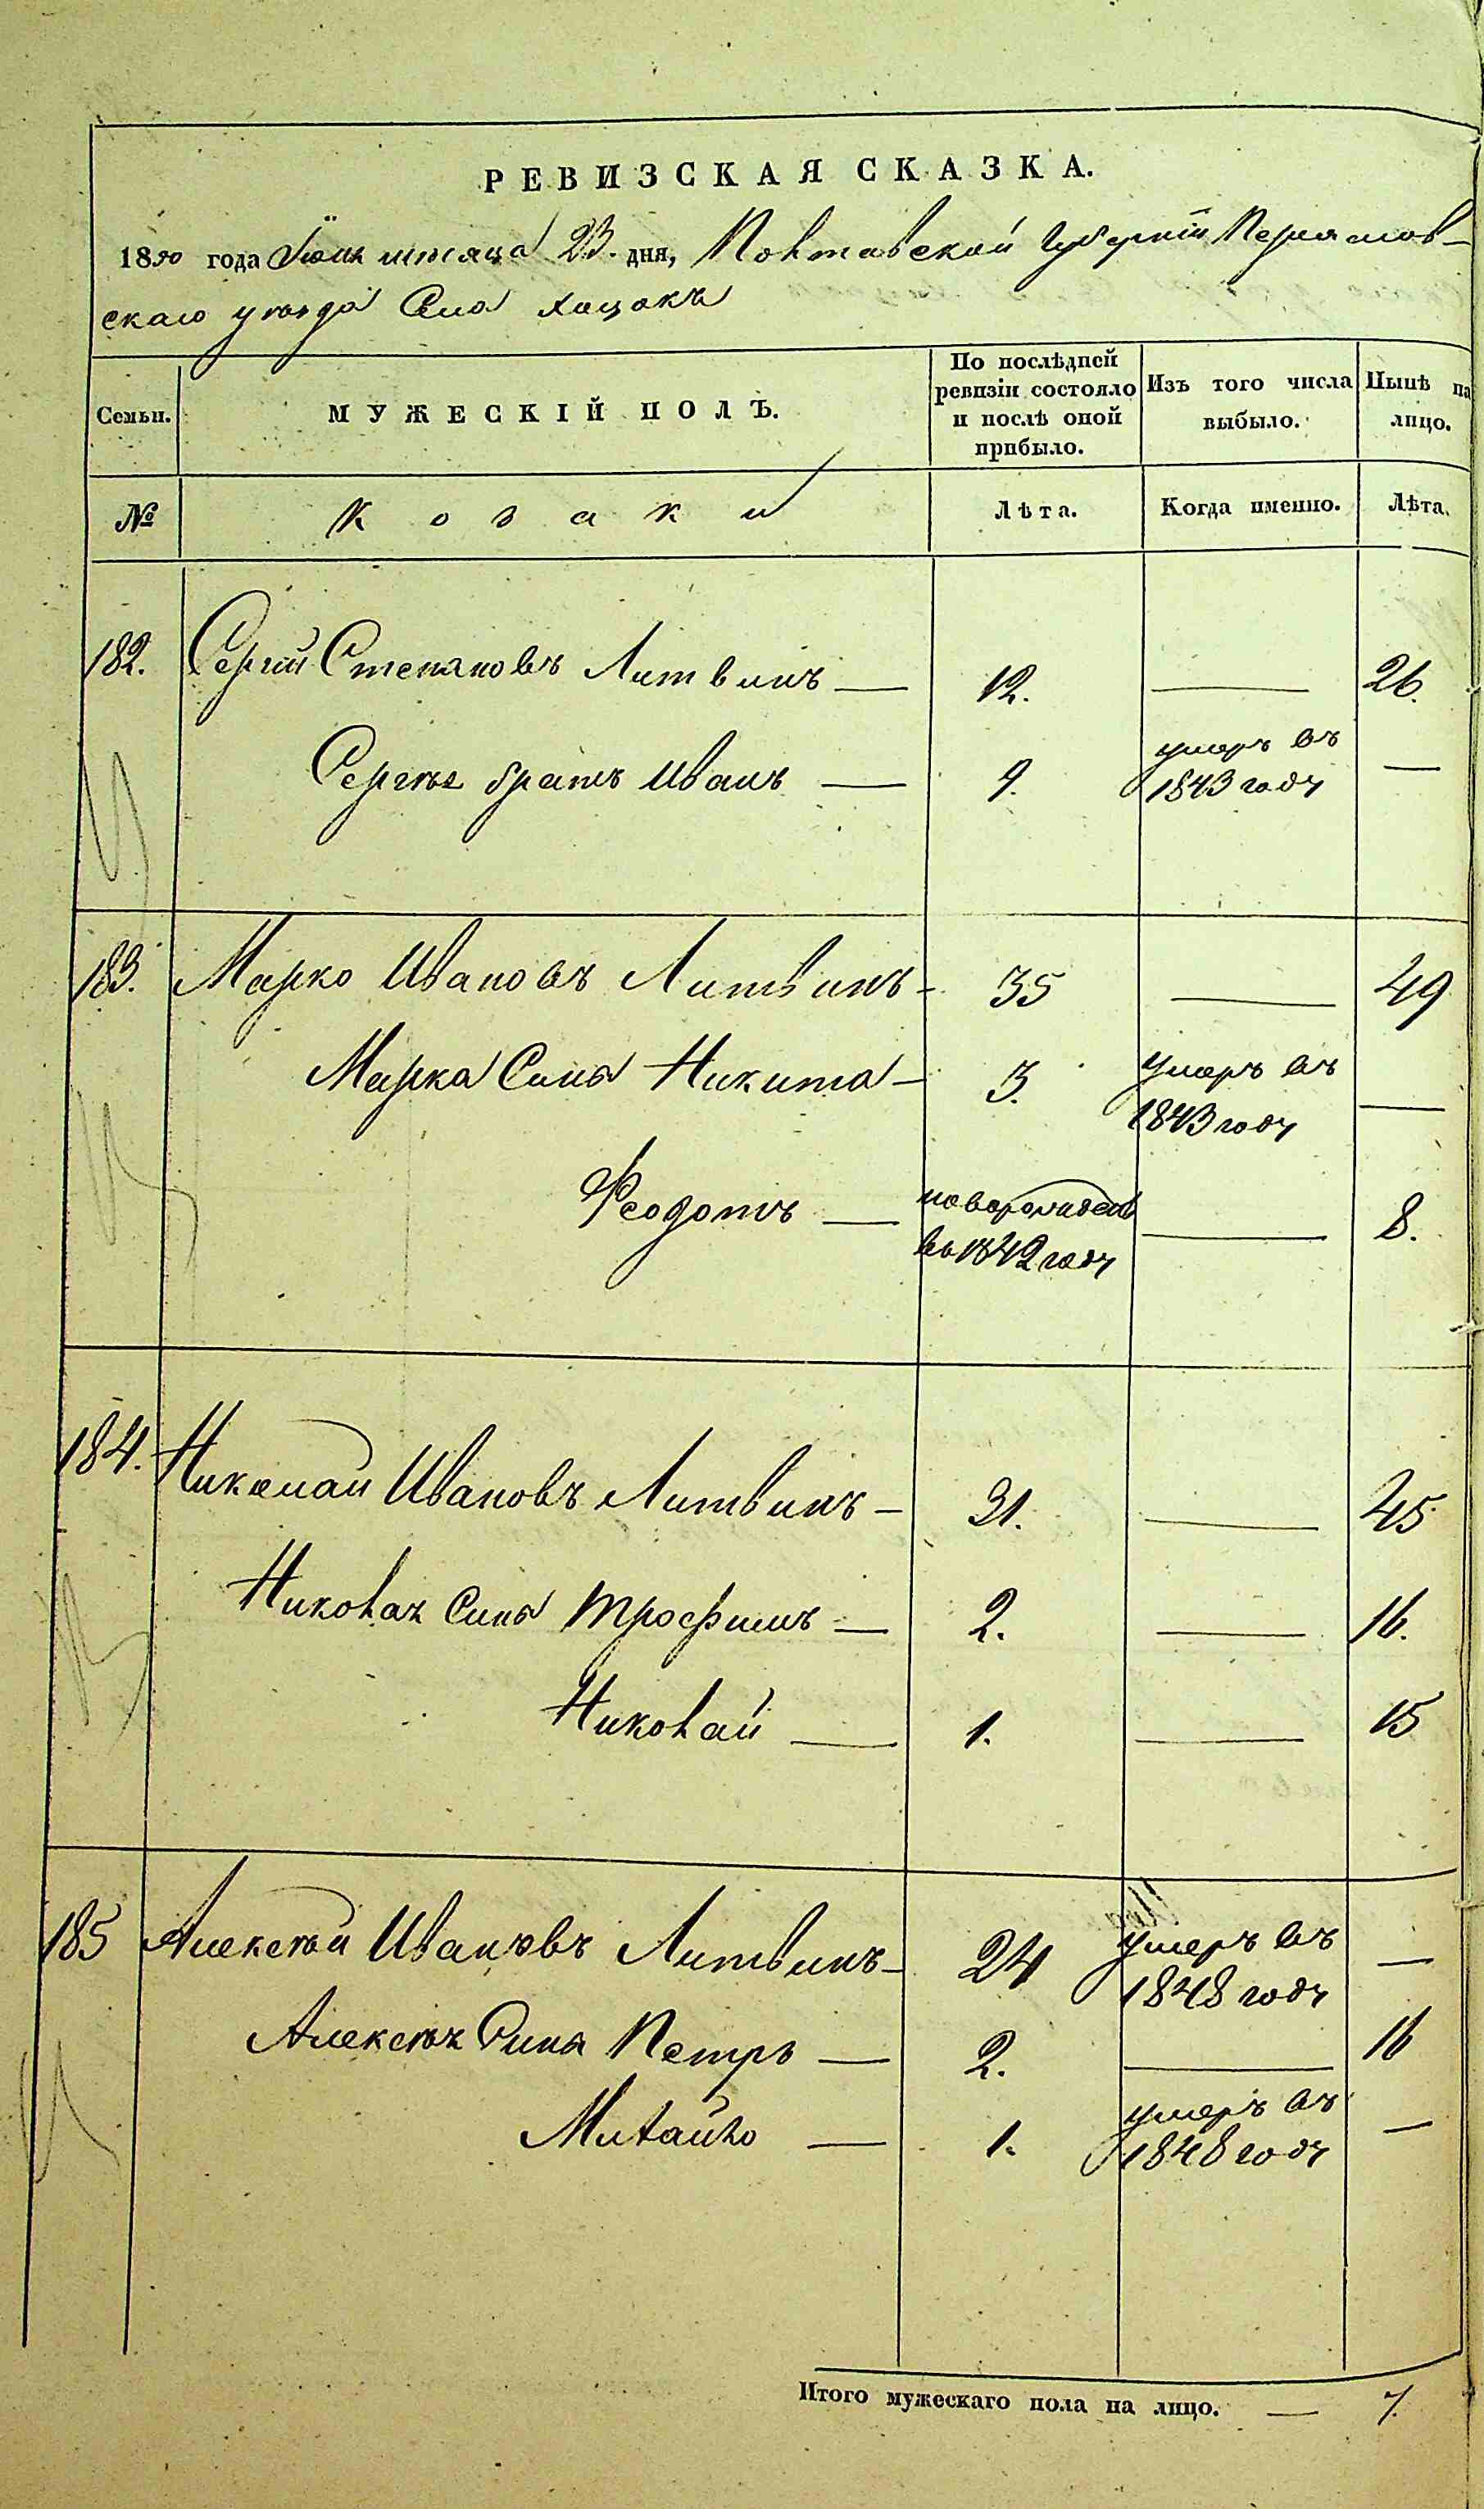 РЕВИЗСКАЯ СКАЗКА.
1850 года Іюня мѣсяца 23. дня, Полтавской Губерніи Перяслав-
скаго уѣзда Села Хацокъ
Семьи.
МУЖЕСКІЙ ПОЛЪ.
По послѣдней
ревизіи состояло
и послѣ оной
прибыло.
Изъ того числа
выбыло.
Нынѣ на
лицо.
№
Козаки
Лѣта.
Когда именно.
Лѣта.
182. Сергій Степановъ Литвинъ — 12. — 26.
Сергѣя братъ Иванъ — 9. умеръ въ —
1843 году
183. Марко Ивановъ Литвинъ - 35 — 49
Марка Сынъ Никита - 3. умеръ въ —
1843 году
Феодотъ — новорожденъ — 8.
въ 1842 году
184. Николай Ивановъ Литвинъ - 31. — 45
Николая Сынъ Трофимъ — 2. — 16.
Николай — 1. — 15
185 Алексѣй Ивановъ Литвинъ - 24 умеръ въ —
1848 году
Алексѣя Сынъ Петръ — 2. — 16
Михайло — 1. умеръ въ —
1848 году
Итого мужескаго пола на лицо. — 7.